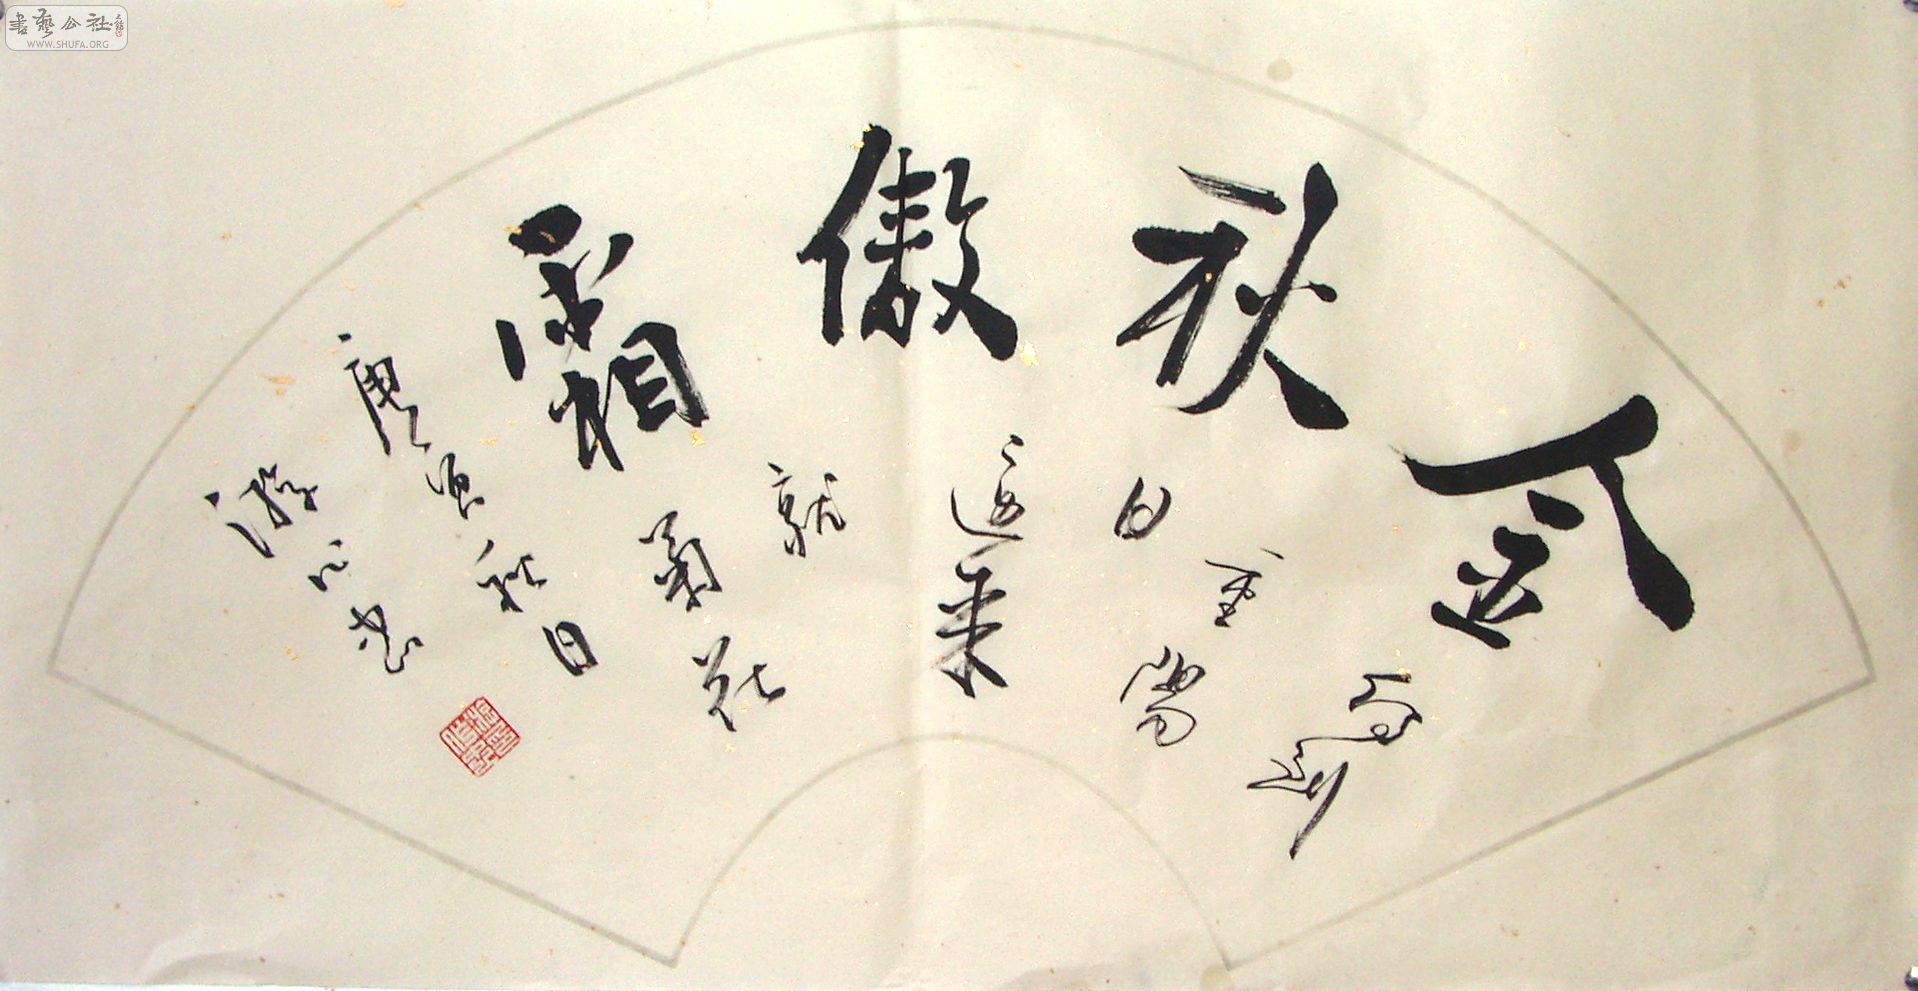 金秋傲霜
待到
重陽
日
還來
就
菊花
庚寅秋日
游心书
書藝公社
WWW.SHUFA.ORG